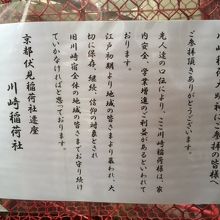 ご参拝頂きありがとうございます。
先人達の口伝により、ここ川崎稲荷様は、家
内安全、学業増進のご利益があるといわれて
おります。
江戸初期より地域の皆さまより慕われ、大
切に保存、継続、信仰の対象とされ
旧川崎宿全体の地域の皆さまでお守り続け
ていかなければと思っております。
京都伏見稲荷社遷座
川崎稲荷社